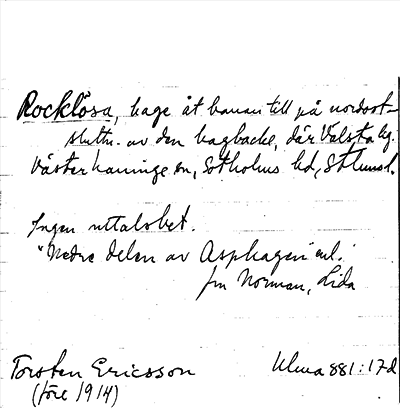 Rocklösa, hage åt banan till på nordost-
sluttn. av den hagbacke, där Valsta lig.
Västerhaninge sn, Sotholms hd, Sthmsl.
Ingen uttalsbet.
"Nedre delen av Asphagen" enl.
fru Norman, Lida
Torsten Ericsson
(före 1914)
Ulma 881:17d